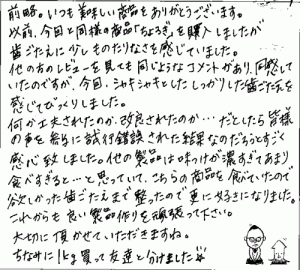 前略。いつも美味しい商品をありがとうございます。
以前、今回と同様の商品「たちょろぎ」を購入しましたが
歯ごたえに少しものたりなさを感じていました。
他の方のレビューを見ても同じようなコメントがあり、同感して
いたのですが、今回、シャキシャキとしたしっかりした歯ごたえを
感じてびっくりしました。
何か工夫されたのか、改良されたのか…だとしたら皆様
の声を参考に試行錯誤された結果なのだろうとすごく
感心致しました。他の製品は味つけが濃すぎてあまり
食べすぎると…と思っていて、こちらの商品を食べていたので
欲しかった歯ごたえまで整ったので更に好きになりました。
これからも良い製品作りを頑張って下さい。
大切に頂かせていただきますね。
ちなみに1kg買って友達と分けました